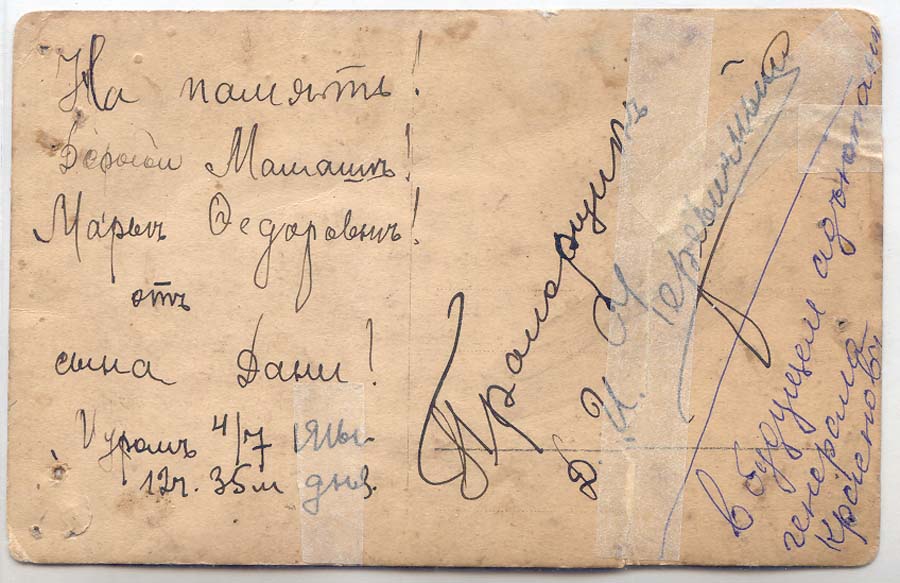 На память!
Дорогой Мамашѣ!
Марьѣ Ѳедоровнѣ!
отъ
сына Дани!
4/7
12ч. 35м дня.
Прапорщикъ
Д. И. Черевичный
в будущем адъютант
генерала
Краснова